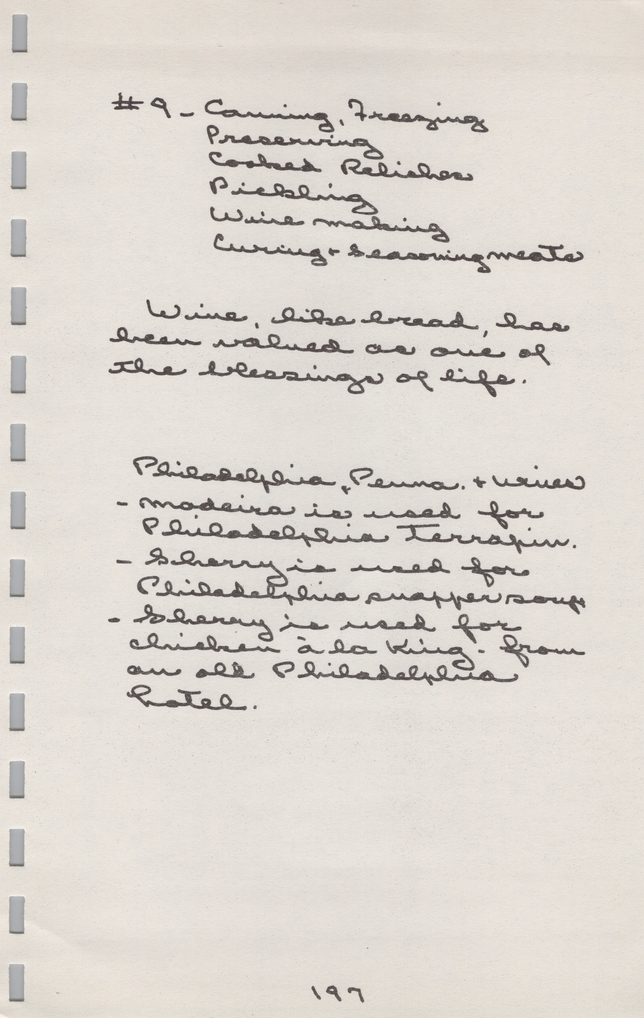 #9 - Canning, Freezing
Preserving
Cooked Relishes
Pickling
Wine making
Curing + Seasoning meats
Wine, like bread, has
been valued as one of
the blessings of life.
Philadelphia, Penna. + wines
- Madeira is used for
Philadelphia Terrapin.
- Sherry is used for
Philadelphia snapper soup
- Sherry is used for
chicken à la King - from
an old Philadelphia
hotel.
197